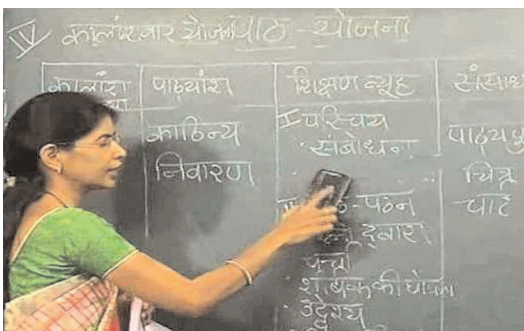 IV कालांशवार योजना पाठ - योजना
कालांश पाठ्यांश शिक्षण व्यूह
काठिन्य
निवारण
I परिचय
संबोधन
पठन
द्वारा
चर्चा
शीर्षक की घोषणा
उद्देश्य
चित्र
चार्ट